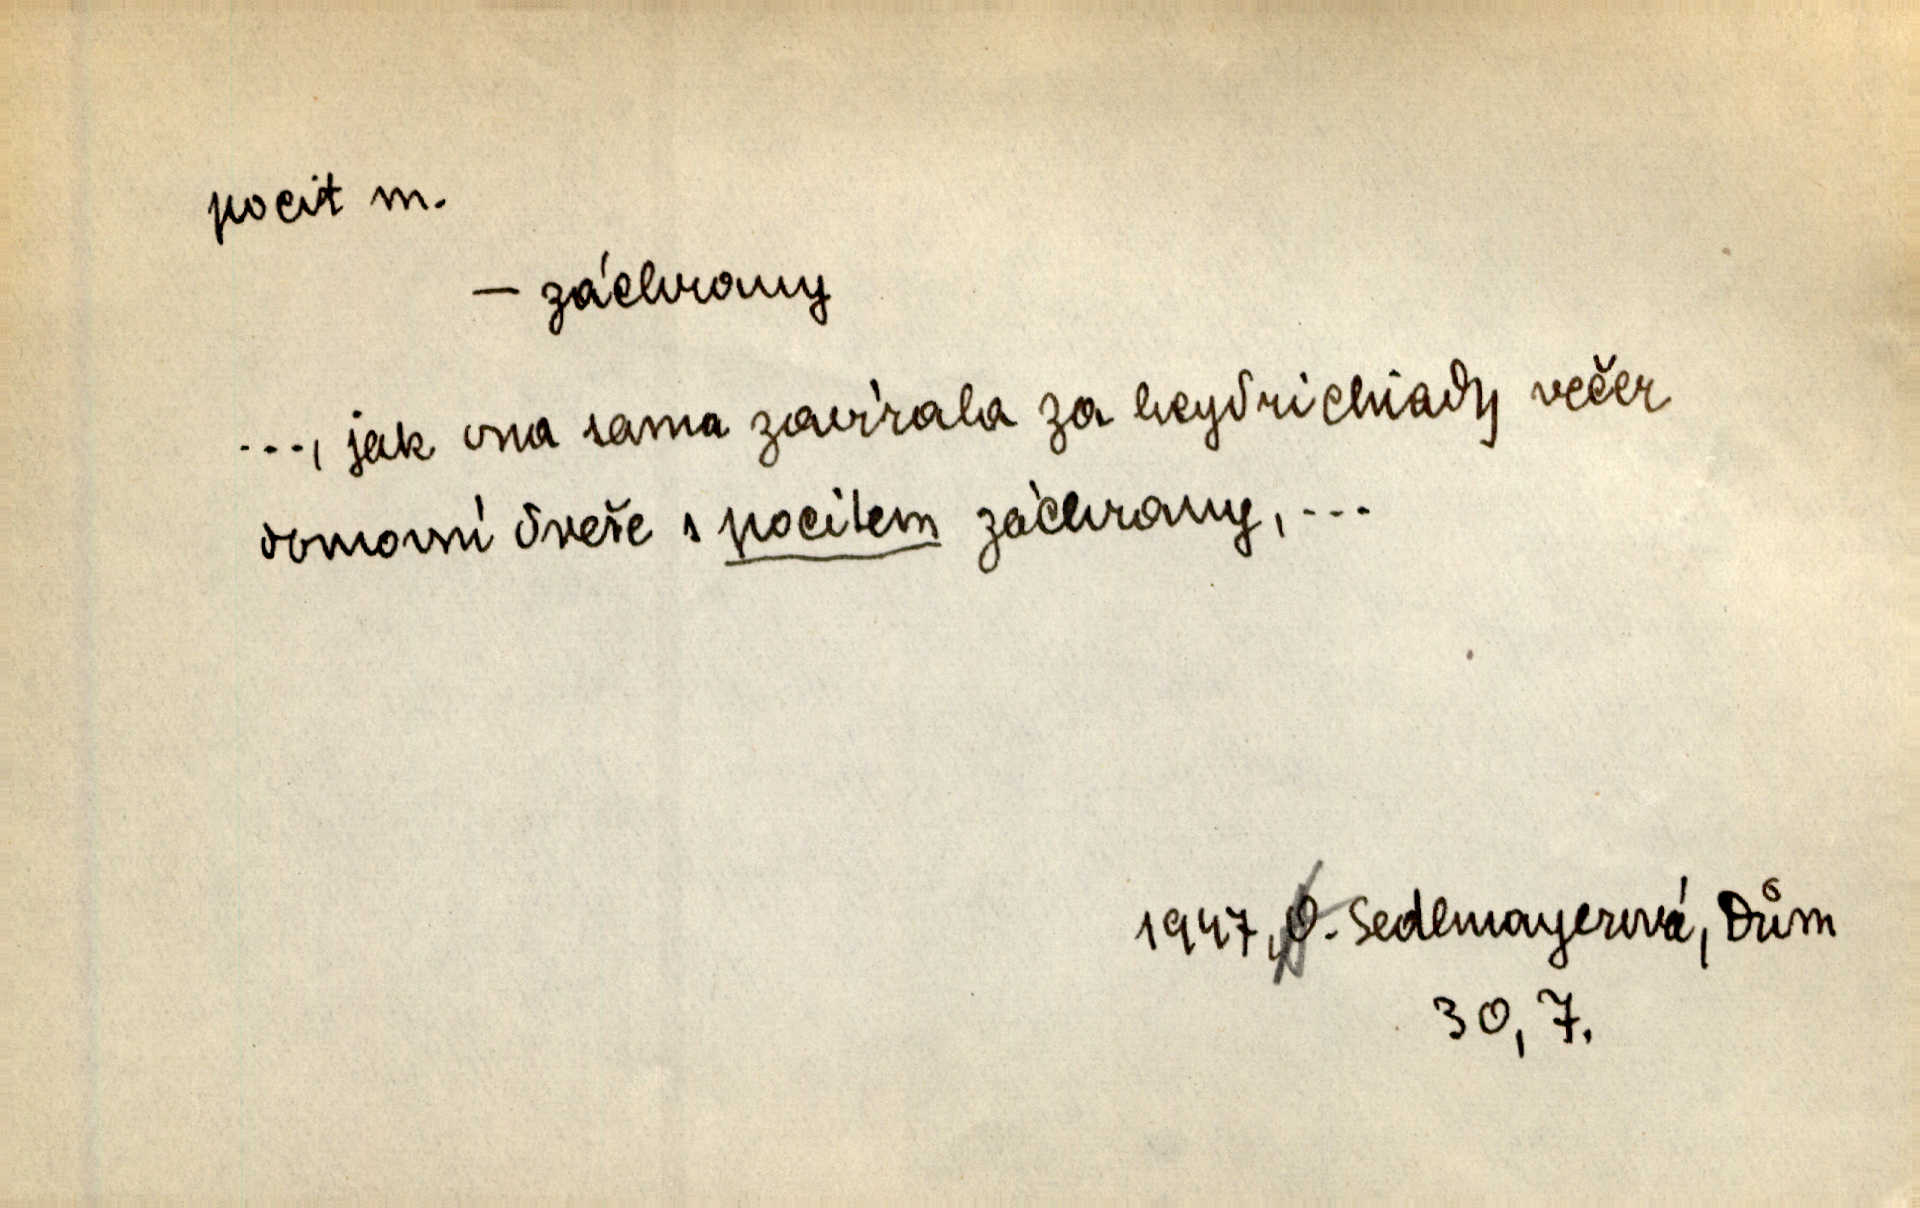 pocit m.
– záchrany
..., jak ona sama zavírala za heydrichiady večer
domovní dveře s pocitem záchrany, ...
1947, O. Sedlmayerová, Dům
30, 7.